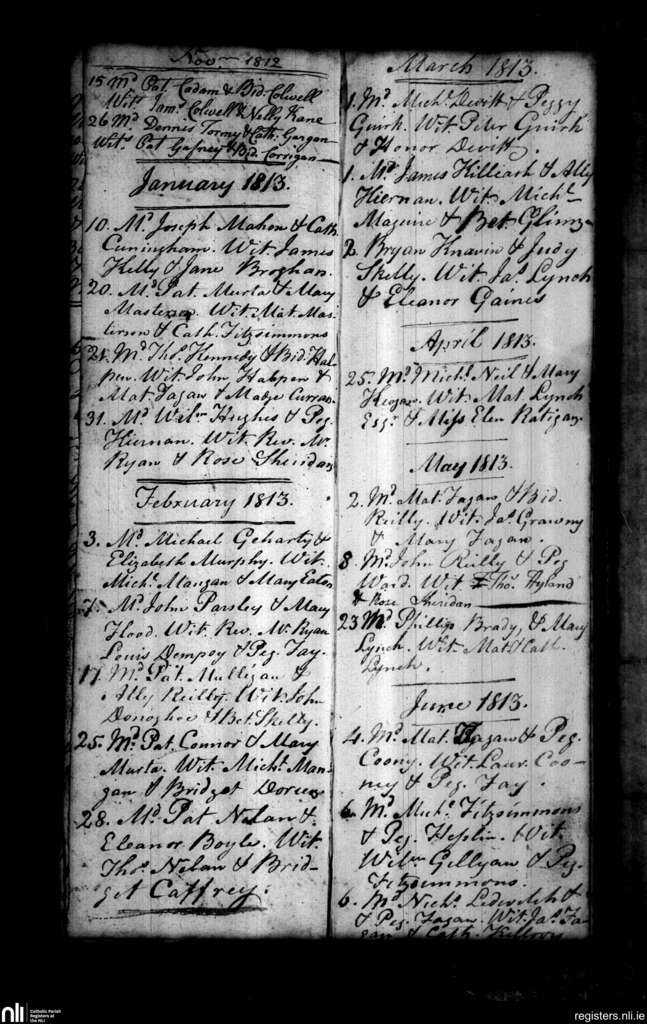 Novr 1812
15 Md Pat. Cadam & Bid. Colwell
Wit Jams. Colwell & Nelly Kane
26 Md Dennes Tormy & Cath. Gargan
Wits. Pat Gafney & Bid. Corrigan
January 1813.
10. Md Joseph Mahon & Cath
Cuningham. Wit. James
Kelly & Jane Broghan.
20. Md Pat. Murta & Mary
Masterson Wit. Mat. Mas-
terson & Cath. Fitzsimmons
21. Md Thos. Kennedy & Bid. Hal
pen. Wit. John Halpen &
Mat. Fagan & Madge Curran
31. Md Wilm Hughes & Peg.
Hiernan. Wit. Rev. Mr.
Ryan & Rose Sheridan
February 1813.
3. Md Michael Geharty &
Elizabeth Murphy. Wit.
Michl. Mangan & Mary Eaton
7. Md John Parsley & Mary
Flood. Wit. Rev. Mr. Ryan
Louis Dempsy & Peg. Fay.
17. Md Pat. Mulligan &
Ally Reilly. Wit. John
Donoghoe & Bet. Skelly.
25. Md Pat. Connor & Mary
Murta. Wit. Michl. Man-
gan & Bridget
28. Md Pat Nolan &
Eleanor Boyle. Wit.
Thos. Nolan & Brid-
get Caffrey.
March 1813.
1. Md Michl. Devitt & Peggy
Guirk. Wit. Peter Guirk
& Honor Devitt.
1. Md James Killeash & Ally
Hiernan. Wit. Michl.
Maguire & Bet.
2. Bryan Knavin & Judy
Skelly. Wit. Jas. Lynch
& Eleanor Gaines
April 1813.
25. Md Michl. Neil & Mary
Keegan. Wit. Mat. Lynch
Esqr. & Miss Elen Ratigan
May 1813.
2. Md Mat. Fagan & Bid.
Reilly. Wit. Jas. Grawny
& Mary Fagan.
8. Md John Reilly & Peg
Ward. Wit Thos. Hyland
& Rose Sheridan
23 Md Phillip Brady, & Mary
Lynch. Wit. Mat & Cath.
Lynch.
June 1813.
4. Md Mat. Fagan & Peg.
Coony. Wit. Laur. Coo-
ney & Peg. Fay.
6. Md Michl. Fitzsimmons
& Peg. Heslin. Wit.
Wilm Gillygan & Peg.
Fitzsimmons.
6. Md Nichs. Ledwitch &
& Peg. Fagan. Wit. Jas. Fa-
gan & Cath.
nli
Catholic Parish
Registers at
the NLI
registers.nli.ie